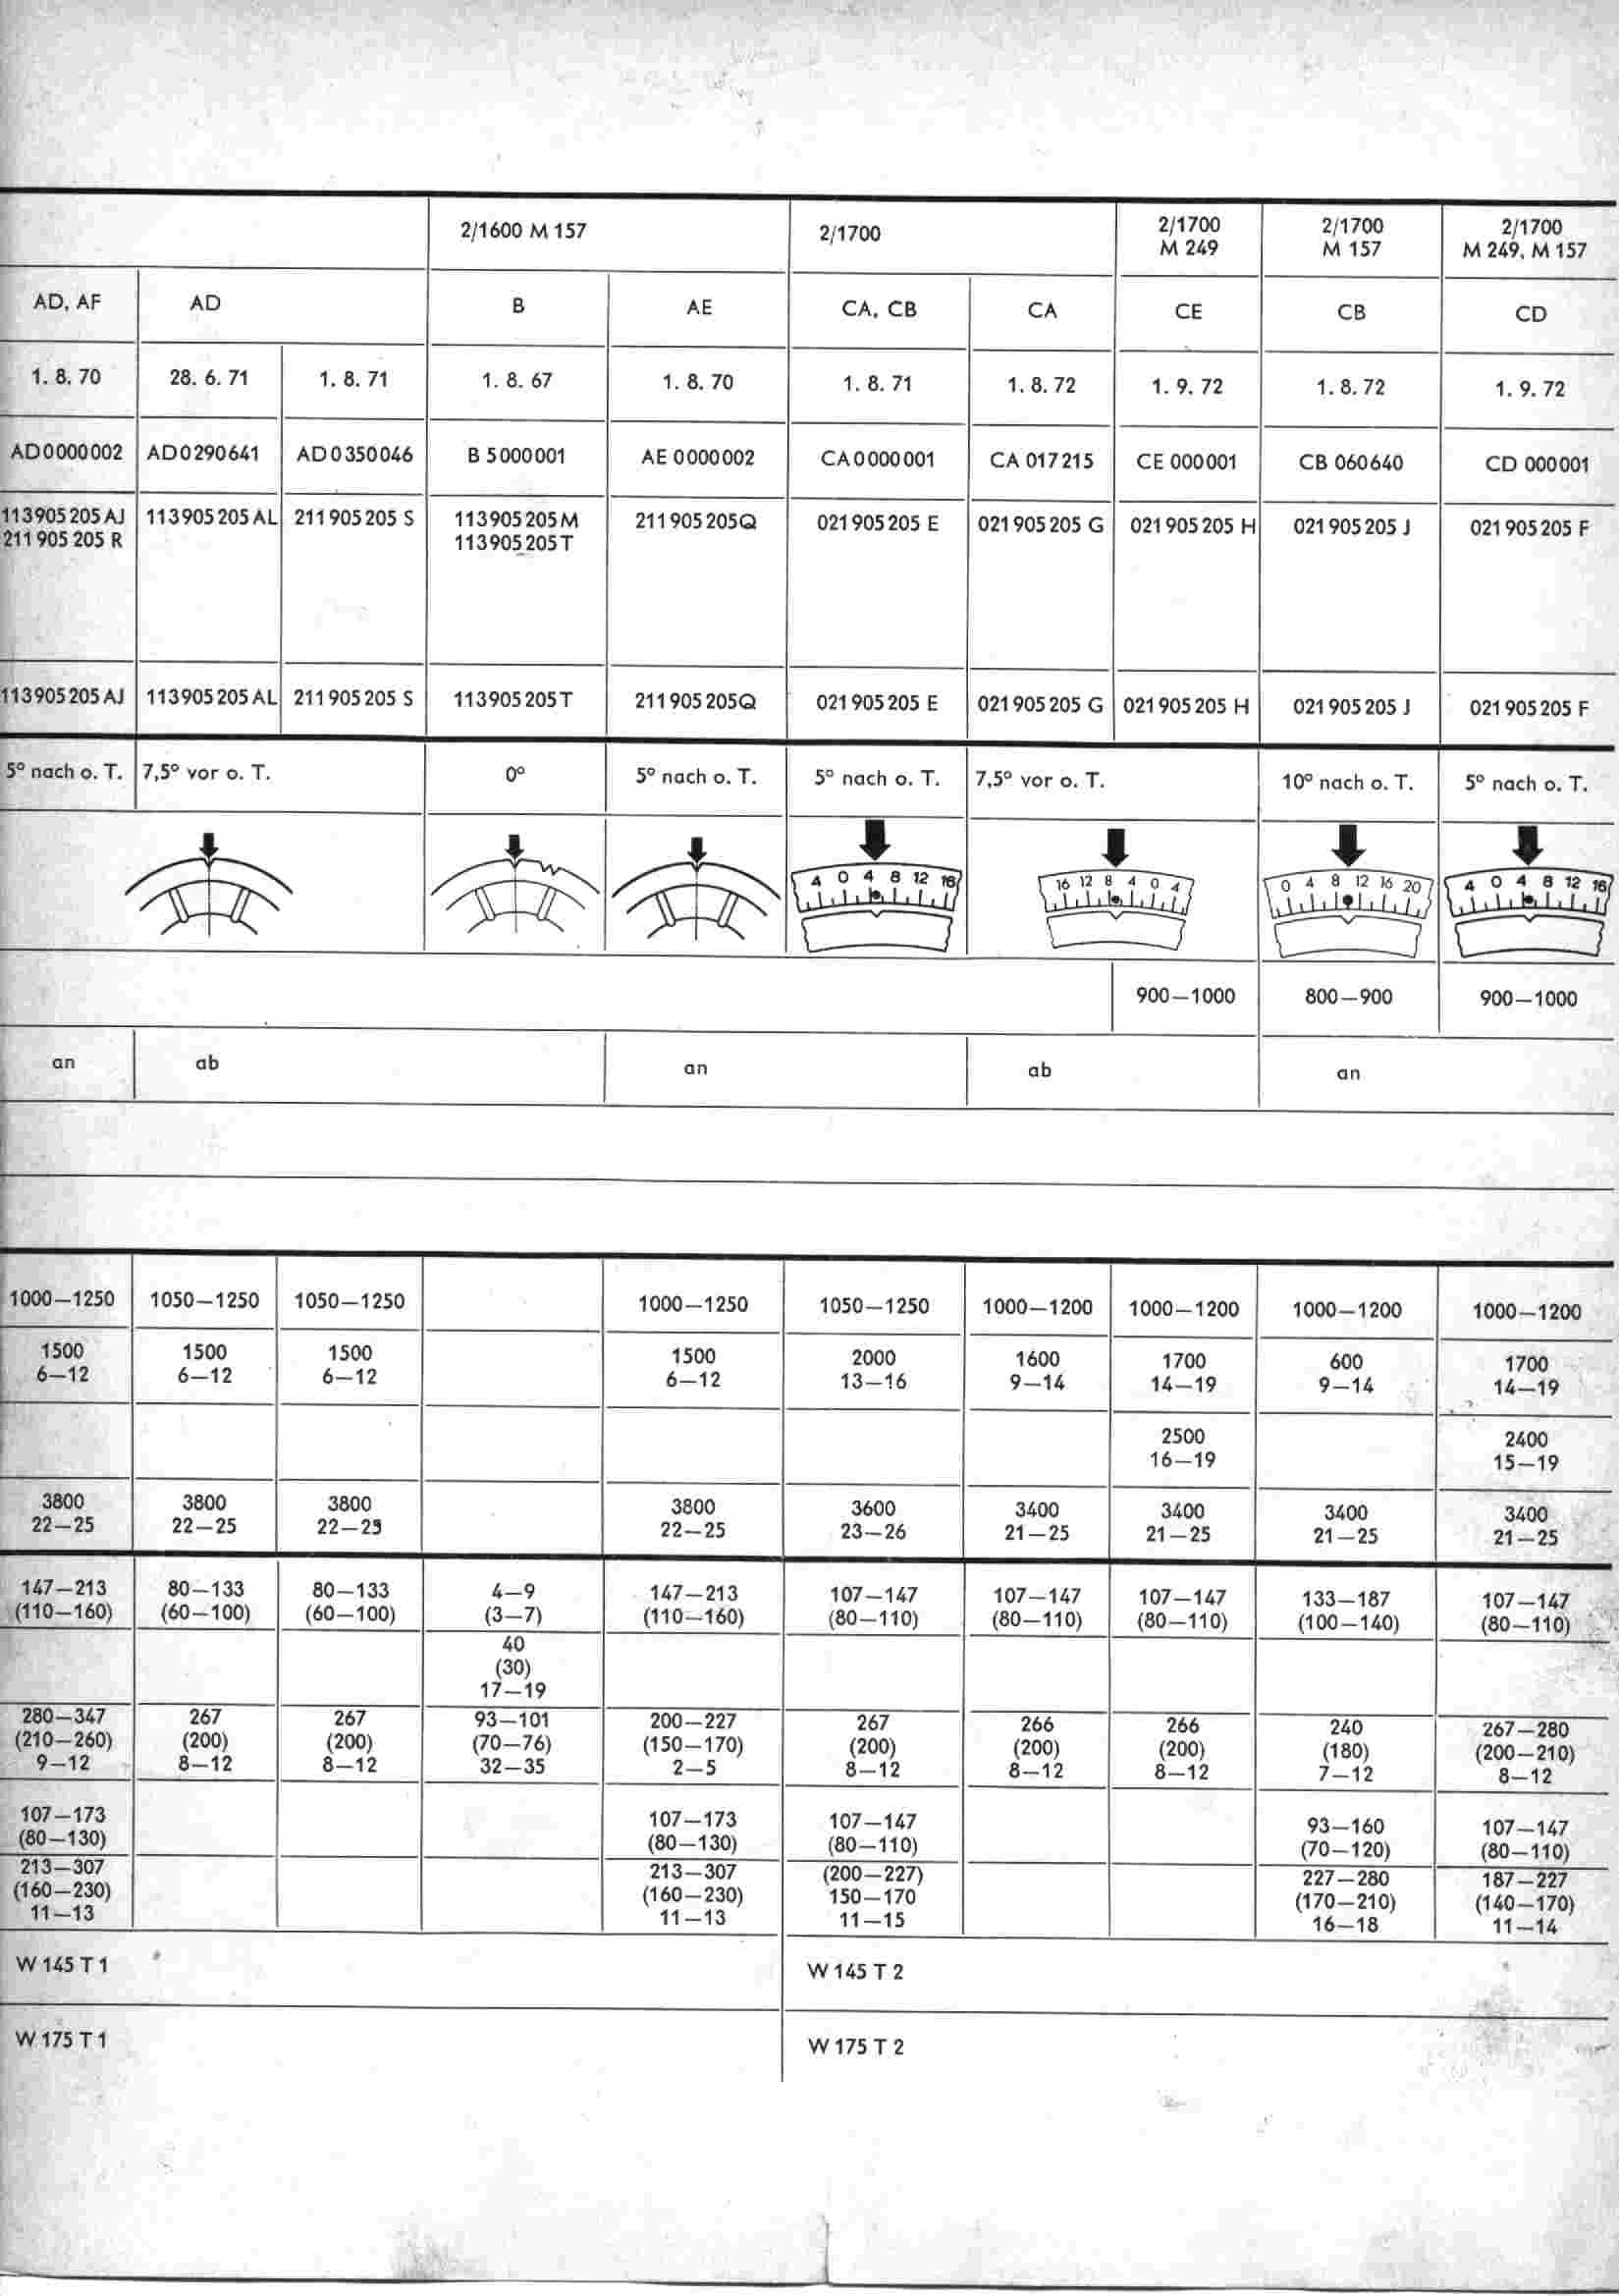 2/1600 M 157
2/1700
2/1700
M 249
2/1700
M 157
2/1700
M 249, M 157
AD, AF
AD
B
AE
CA, CB
CA
CE
CB
CD
1. 8. 70
28. 6. 71
1. 8. 71
1. 8. 67
1. 8. 70
1. 8. 71
1. 8. 72
1. 9. 72
1. 8. 72
1. 9. 72
AD0000002
AD0290641
AD0350046
B 5000001
AE 0000002
CA0000001
CA 017215
CE 000001
CB 060640
CD 000001
113905205AJ
211 905 205 R
113905205AL
211905205 S
113905205M
113905205T
211905205Q
021905205 E
021905205 G
021905205 H
021905205 J
021905205 F
113905205AJ
113905205AL
211905205 S
113905205T
211905205Q
021905205 E
021905205 G
021905205 H
021905205 J
021905205 F
5° nach o. T.
7,5° vor o. T.
0°
5° nach o. T.
5° nach o. T.
7,5° vor o. T.
10° nach o. T.
5° nach o. T.
4 0 4 8 12 16
16 12 8 4 0 4
0 4 8 12 16 20
4 0 4 8 12 16
900—1000
800—900
900—1000
an
ab
an
ab
an
1000—1250
1050—1250
1050—1250
1000—1250
1050—1250
1000—1200
1000—1200
1000—1200
1000—1200
1500
6—12
1500
6—12
1500
6—12
1500
6—12
2000
13—16
1600
9—14
1700
14—19
600
9—14
1700
14—19
2500
16—19
2400
15—19
3800
22—25
3800
22—25
3800
22—25
3800
22—25
3600
23—26
3400
21—25
3400
21—25
3400
21—25
3400
21—25
147—213
(110—160)
80—133
(60—100)
80—133
(60—100)
4—9
(3—7)
147—213
(110—160)
107—147
(80—110)
107—147
(80—110)
107—147
(80—110)
133—187
(100—140)
107—147
(80—110)
40
(30)
17—19
280—347
(210—260)
9—12
267
(200)
8—12
267
(200)
8—12
93—101
(70—76)
32—35
200—227
(150—170)
2—5
267
(200)
8—12
266
(200)
8—12
266
(200)
8—12
240
(180)
7—12
267—280
(200—210)
8—12
107—173
(80—130)
107—173
(80—130)
107—147
(80—110)
93—160
(70—120)
107—147
(80—110)
213—307
(160—230)
11—13
213—307
(160—230)
11—13
(200—227)
150—170
11—15
227—280
(170—210)
16—18
187—227
(140—170)
11—14
W 145 T 1
W 145 T 2
W 175 T 1
W 175 T 2